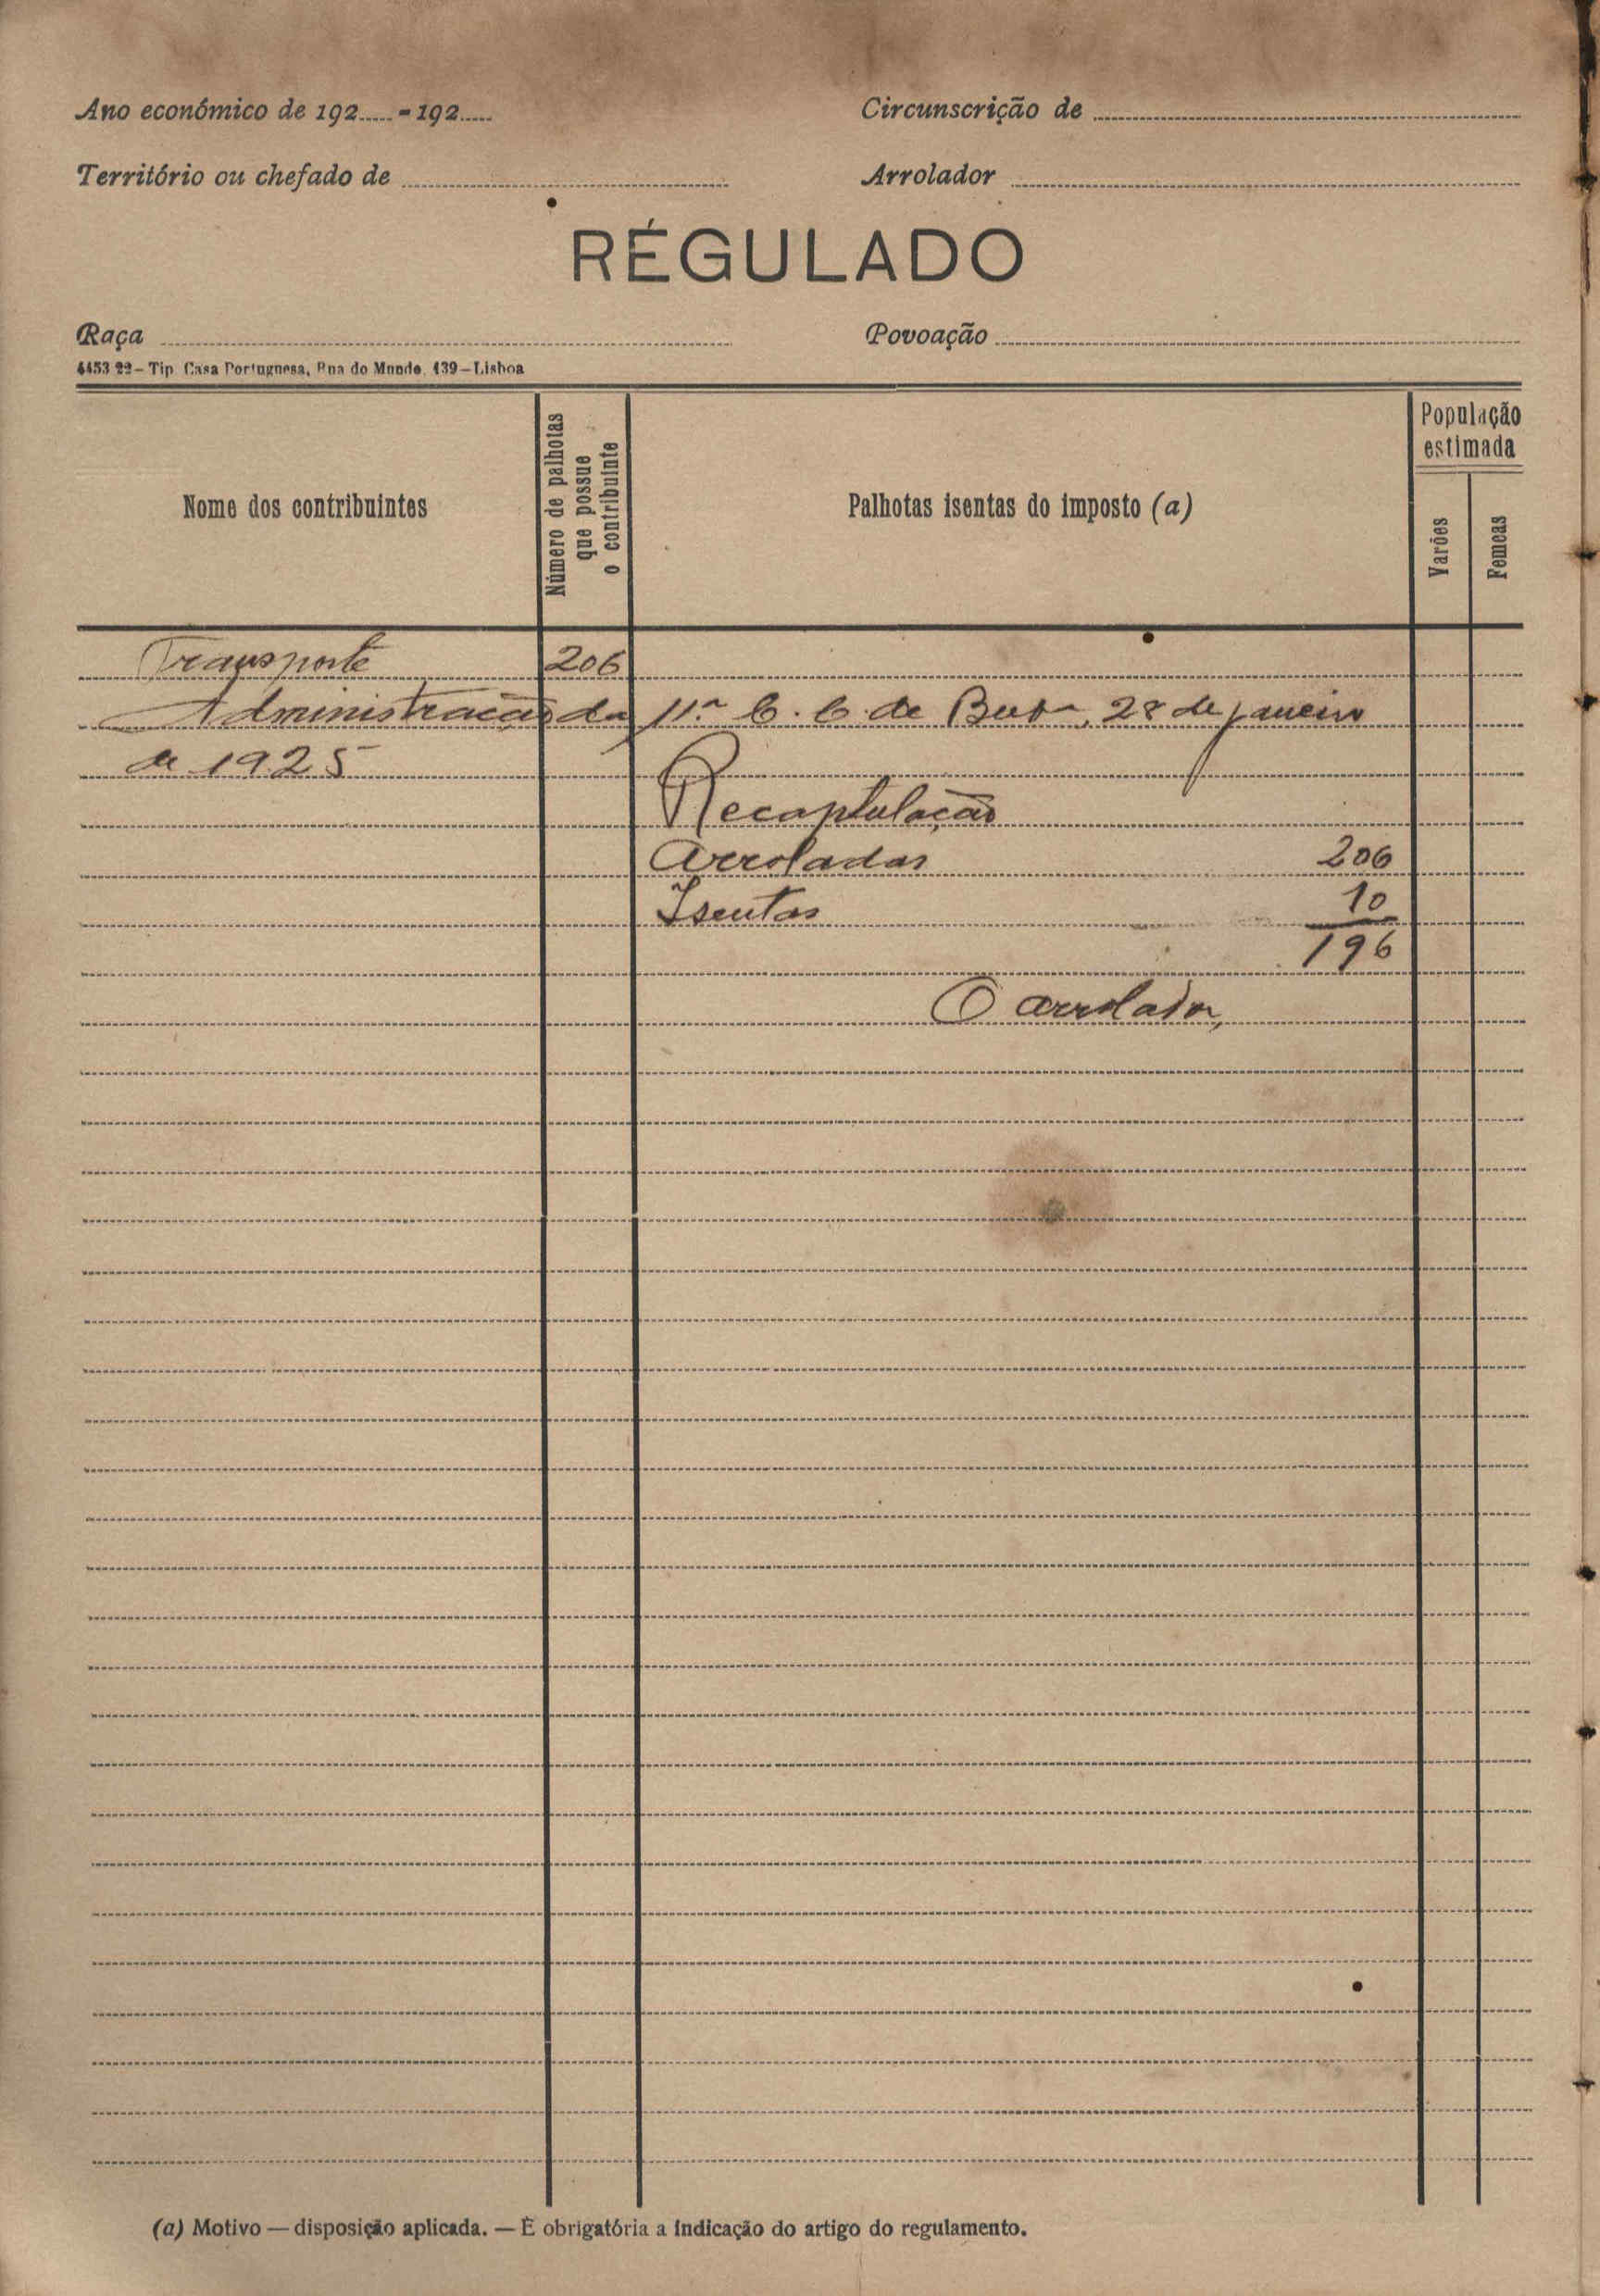 Ano económico de 192.....-192.....
Circunscrição de
Território ou chefado de
Arrolador
RÉGULADO
Raça
Povoação
4453 22 – Tip. Casa Portuguesa, Rua do Mundo, 139 – Lisboa
Nome dos contribuintes
Número de palhotas
que possue
o contribuinte
Palhotas isentas do imposto (a)
População
estimada
Varões
Femeas
Transporte 206
Administração da 11.ª C. C. de Buba, 28 de janeiro
de 1925
Recaptulação
Arroladas 206
Isentas 10
196
O arrolador,
(a) Motivo — disposição aplicada. — É obrigatória a indicação do artigo do regulamento.